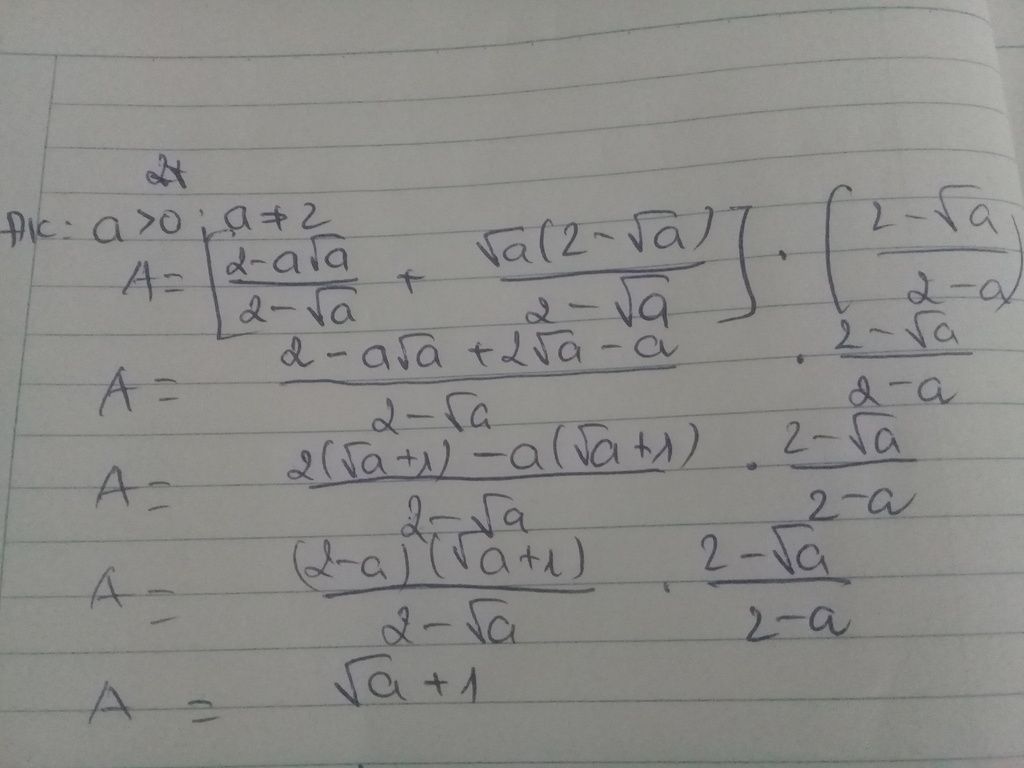 ĐK: a>0; a ≠ 2
A = [ (2-a√a)/(2-√a) + √a(2-√a)/(2-√a) ] . ( (2-√a)/(2-a) )
A = (2-a√a+2√a-a)/(2-√a) . (2-√a)/(2-a)
A = (2(√a+1)-a(√a+1))/(2-√a) . (2-√a)/(2-a)
A = ((2-a)(√a+1))/(2-√a) . (2-√a)/(2-a)
A = √a+1